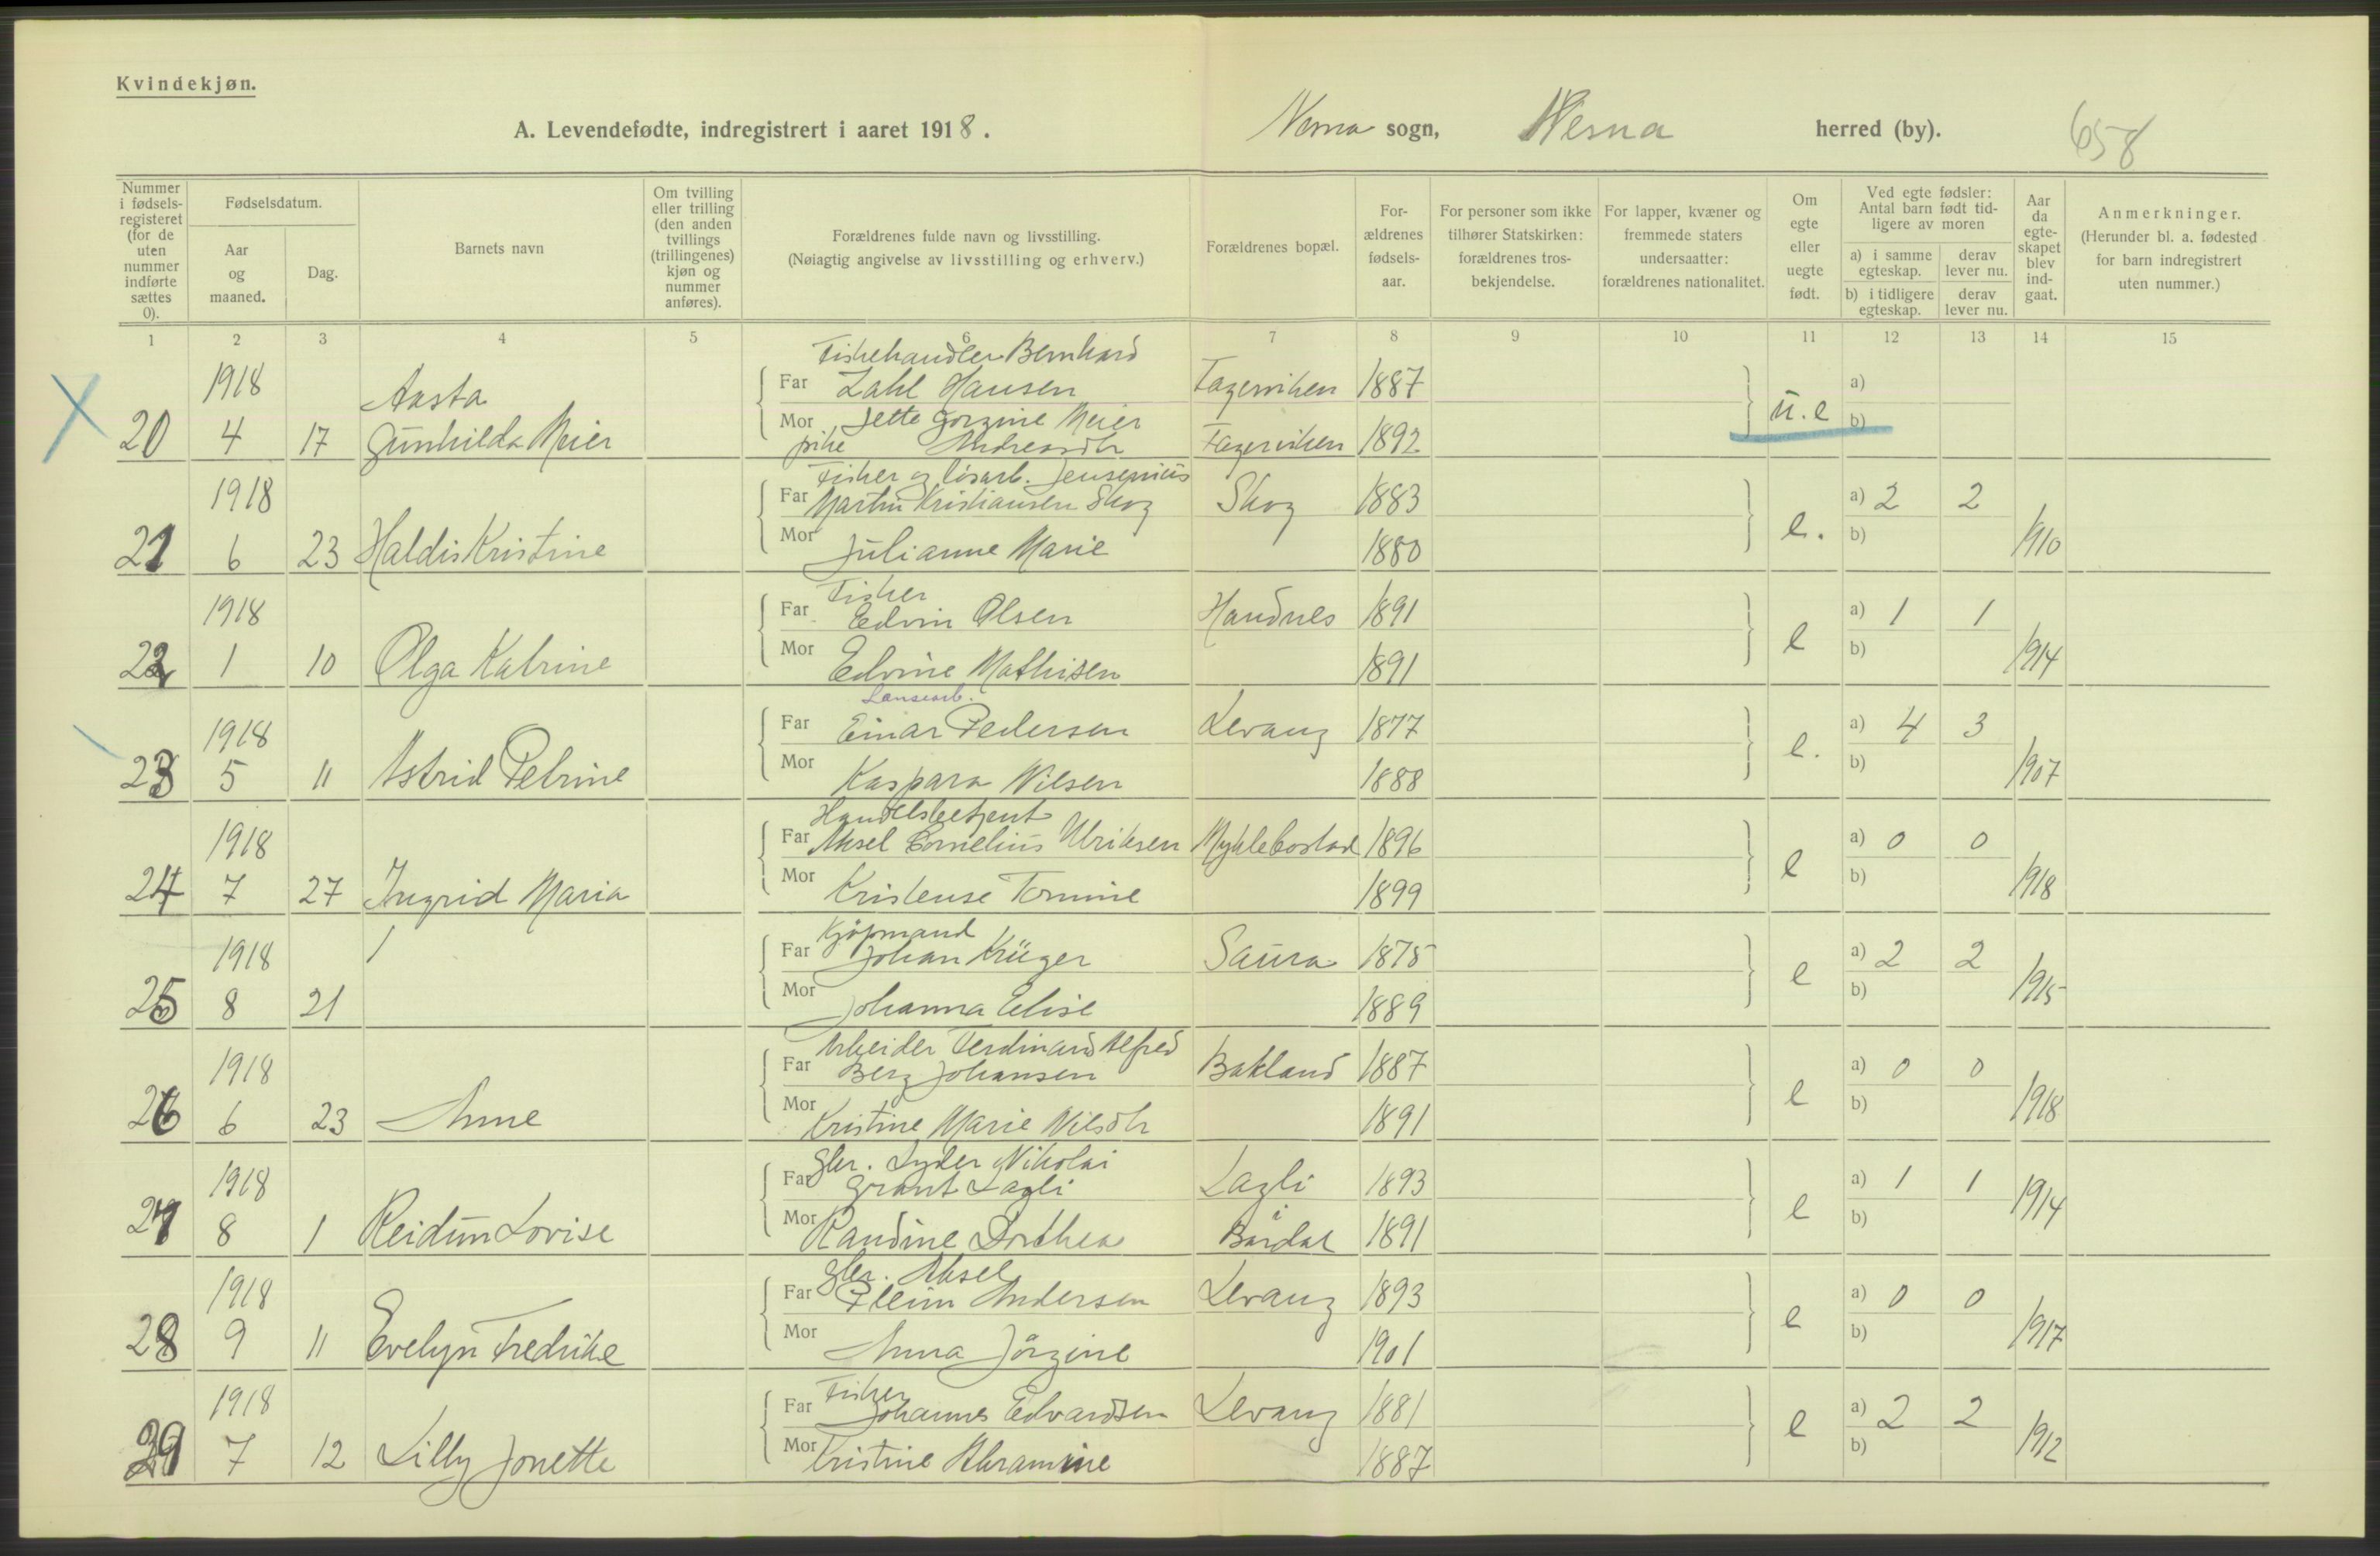 Kvindekjøn.
A. Levendefødte, indregistrert i aaret 1918. Nesna sogn, Nesna herred (by). 658
Nummer i fødsels-registeret (for de uten nummer indførte sættes 0).
Fødselsdatum.
Aar og maaned.
Dag.
Barnets navn
Om tvilling eller trilling (den anden tvillings (trillingenes) kjøn og nummer anføres).
Forældrenes fulde navn og livsstilling.
(Nøiagtig angivelse av livsstilling og erhverv.)
Forældrenes bopæl.
For-ældrenes fødsels-aar.
For personer som ikke tilhører Statskirken: forældrenes tros-bekjendelse.
For lapper, kvæner og fremmede staters undersaatter: forældrenes nationalitet.
Om egte eller uegte født.
Ved egte fødsler: Antal barn født tid-ligere av moren
a) i samme egteskap. derav lever nu.
b) i tidligere egteskap. derav lever nu.
Aar da egte-skapet blev ind-gaat.
Anmerkninger.
(Herunder bl. a. fødested for barn indregistrert uten nummer.)
1 2 3 4 5 6 7 8 9 10 11 12 13 14 15
Fiskehandler Bernhard
1918 Aasta Far Zahl Hansen Fagerviken 1887 a)
20 4 17 Gunhilda Meier Mor Jette Jørgine Meier u.e b)
pike Andreasdtr Fagerviken 1892
Fisker og løsarb. Jensenius
1918 Far Martin Kristiansen Skog Skog 1883 a) 2 2
21 6 23 Haldis Kristine Mor Julianne Marie 1880 e. b) 1910
Fisker
1918 Far Edvin Olsen Handnes 1891 a) 1 1
22 1 10 Olga Katrine Mor Edvine Mathisen 1891 e b) 1914
Lansearb.
1918 Far Einar Pedersen Levang 1877 a) 4 3
23 5 11 Astrid Petrine Mor Kaspara Nilsen 1888 e. b) 1907
Handelsbetjent
1918 Far Aksel Cornelius Ulriksen Myklebostad 1896 a) 0 0
24 7 27 Ingrid Maria Mor Kristense Tomine 1899 e b) 1918
Kjøpmand
1918 / Far Johan Krüger Saura 1875 a) 2 2
25 8 21 Mor Johanna Elise 1889 e b) 1915
Arbeider Ferdinand Alfred
1918 Far Berg Johansen Bakland 1887 a) 0 0
26 6 23 Anne Mor Kristine Marie Nilsdtr 1891 e b) 1918
gbr. Lyder Nikolai
1918 Far Grant Lagli Lagli 1893 a) 1 1
27 8 1 Reidun Lovise Mor Randine Dorthea i Bardal 1891 e b) 1914
gbr. Aksel
1918 Far Pleim Andersen Levang 1893 a) 0 0
28 9 11 Evelyn Fredrike Mor Anna Jörgine 1901 e b) 1917
Fisker
1918 Far Johannes Edvardsen Levang 1881 a) 2 2
29 7 12 Lilly Jonette Mor Kristine Abramine 1887 e b) 1912